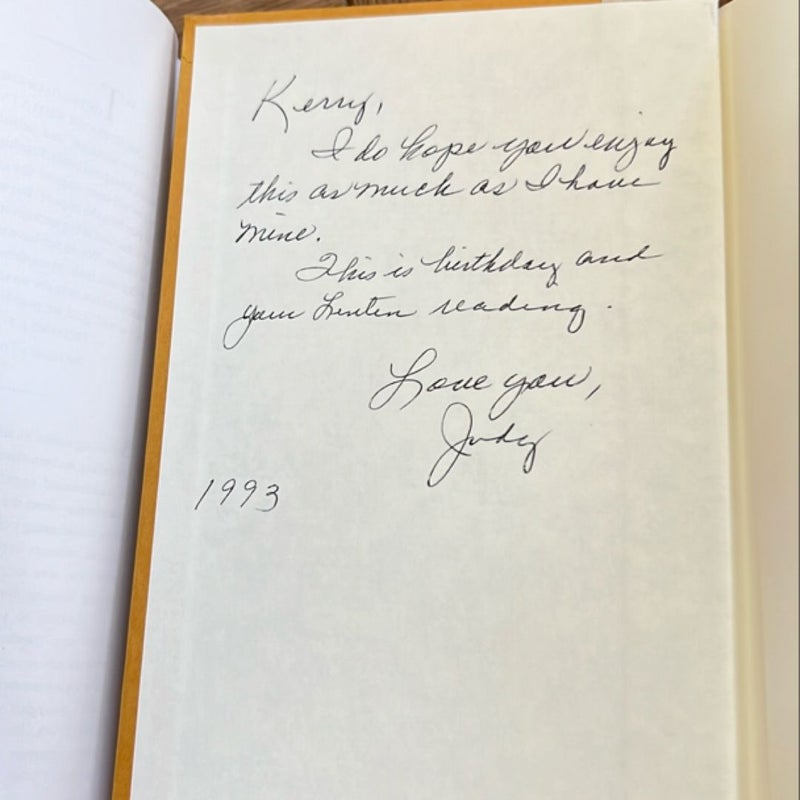 Kerry,
I do hope you enjoy
this as much as I have
mine.
This is birthday and
your Lenten reading.
Love you,
Judy
1993